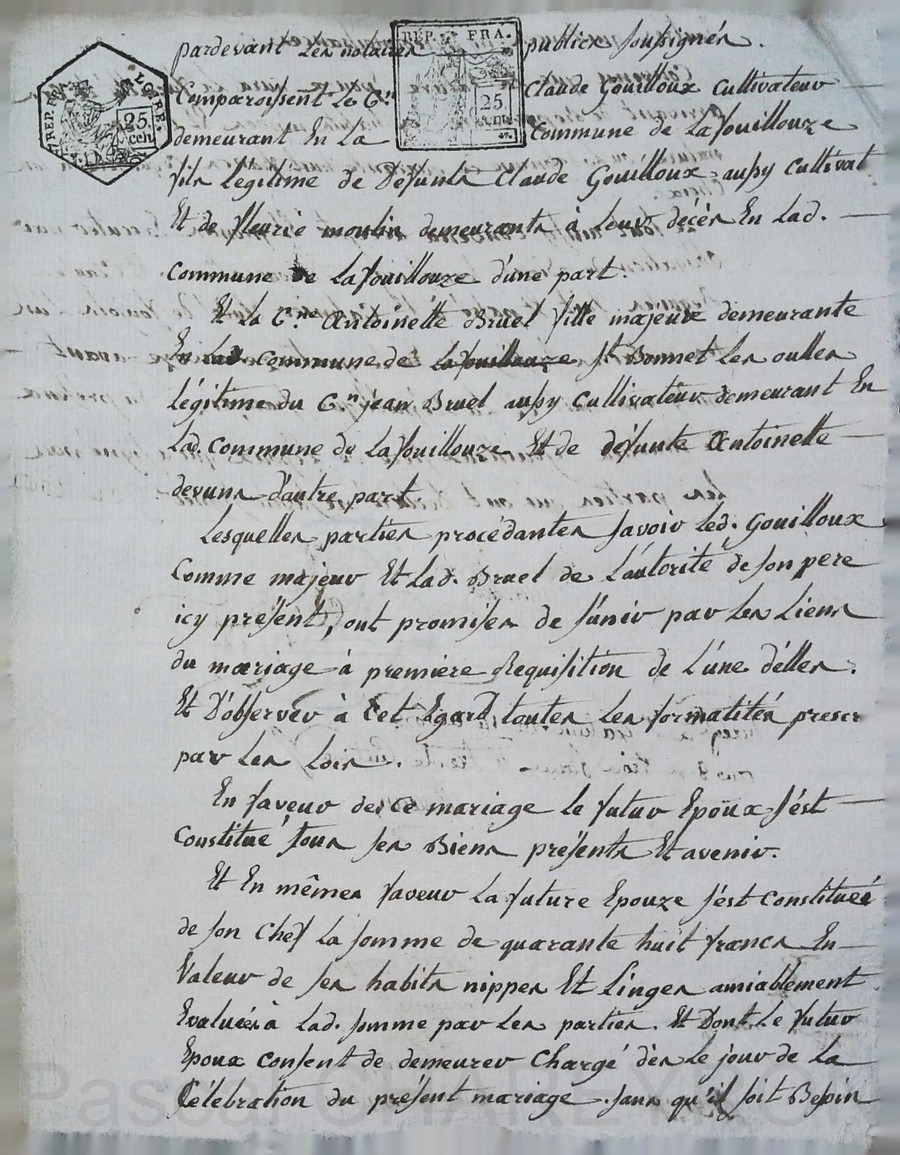 pardevant Les notaires REP. FRA. publics soussignés.
Comparoissent Le C.en Claude Gouilloux Cultivateur
REP. LOIRE. 25 cen
demeurant En La 25 Commune de Lafouillouze
fils Légitime de Défunts Claude Gouilloux aussy Cultivat
Et de fleurie moulin demeurants à Leur décès En Lad.
Commune de Lafouillouze d'une part.
Et La C.e Antoinette Bruel fille majeure demeurante
En lad commune de Lafouillouze St Bonnet Les oulles
légitime du C.en jean Bruel aussy Cultivateur demeurant En
Lad. Commune de Lafouillouze Et de défunte Antoinette
devuns d'autre part
Lesquelles parties procédantes savoir Led. Gouilloux
Comme majeur Et Lad. Bruel de L'autorité de son pere
icy présent, ont promises de s'unir par Les Liens
du mariage à première Requisition de L'une d'elles.
Et D'observer à Cet Egard toutes Les formalités prescr
par Les Lois.
En faveur de Ce mariage le futur Epoux s'est
Constitué tous ses Biens présents Et avenir.
Et En mêmes faveur La future Epouze s'est Constituée
de son Chef La somme de quarante huit francs En
Valeur de ses habits nippes Et Linges amiablement
Evalués à Lad. somme par Les parties. Et Dont Le futur
Epoux consent de demeurer Chargé dès Le jour de La
Célébration du présent mariage. sans qu'il soit Besoin